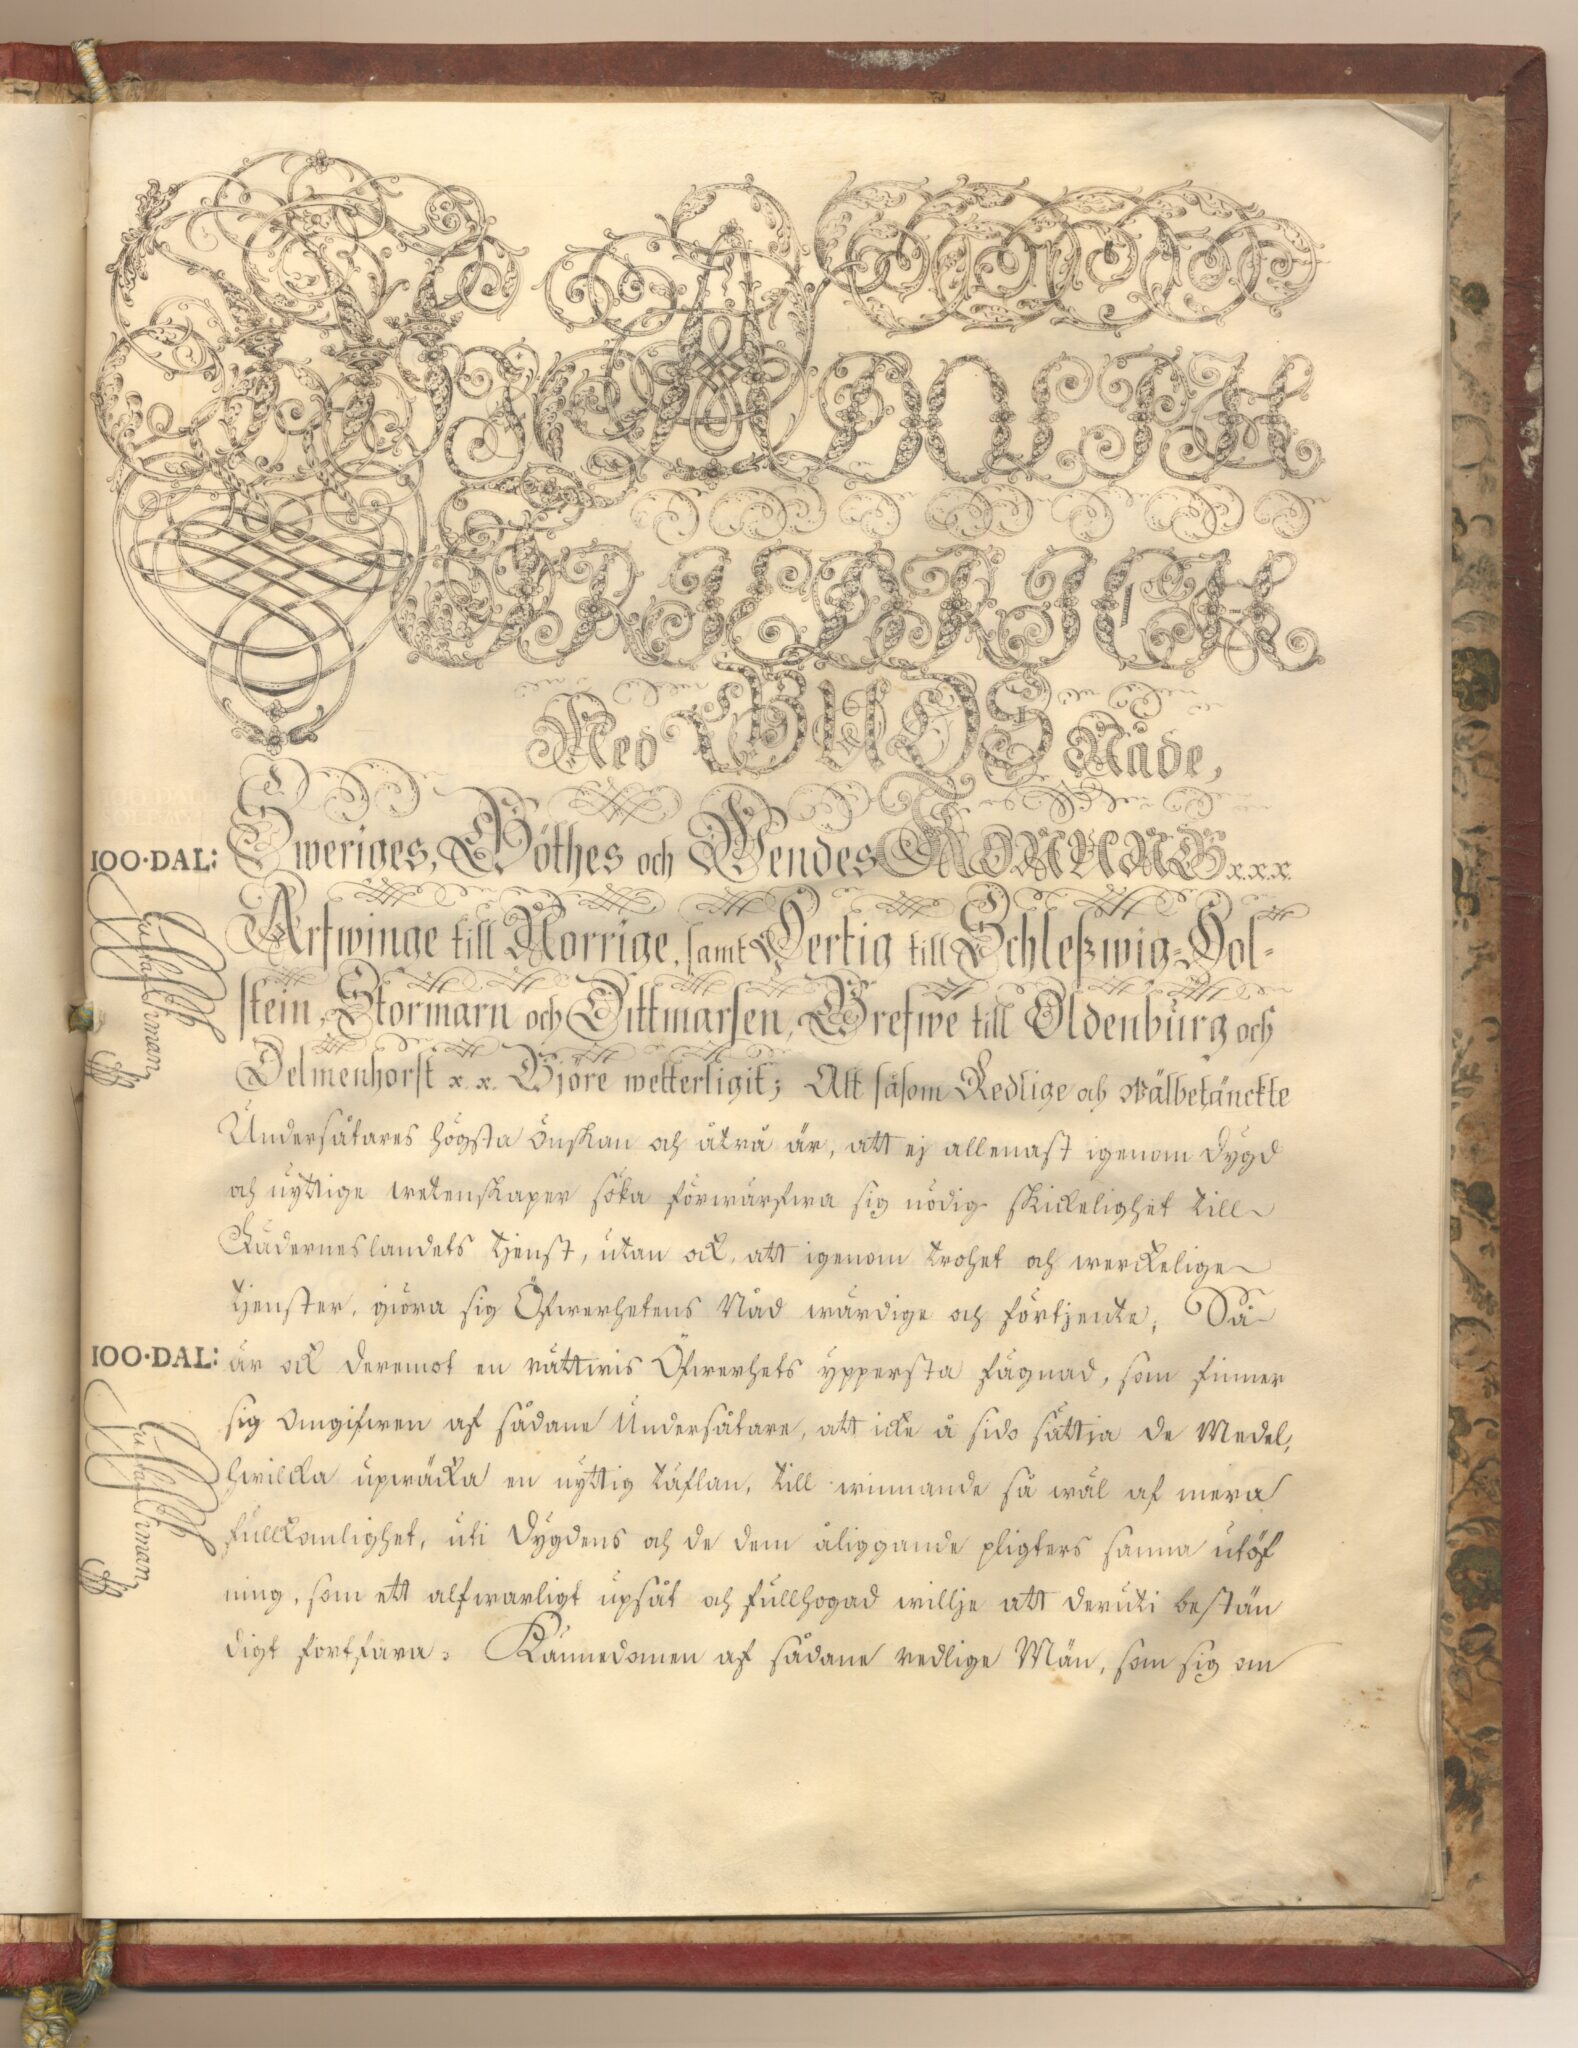 Wi ADOLPH
FRIEDRICH
Med GUDS Nåde,
Sweriges, Göthes och Wendes KONUNG x.x.x.
Arfwinge till Norrige, samt Hertig till Schleßwig-Hol-
stein, Stormarn och Dittmarsen, Grefwe till Oldenburg och
Delmenhorst x. x. Gjöre wetterligit; Att såsom Redlige och wälbetänckte
Undersåtares högsta önskan och åtrå är, att ej allenast igenom dygd
och nyttige wetenskaper söka förwärfwa sig nödig skickelighet till
Fäderneslandets tjenst, utan ock, att igenom trohet och werckelige
tjenster, giöra sig Öfwerhetens Nåd wärdige och förtjente; Så
är ock deremot en rättwis Öfwerhets yppersta fägnad, som finner
sig omgifwen af sådane Undersåtare, att icke å sido sättja de Medel,
hwilcka upwäcka en nyttig täflan, till winnande så wäl af mera
fullkomlighet, uti Dygdens och de dem åliggande pligters sanna utöf
ning, som ett alfwarligt upsåt och fullhogad willje att deruti bestän
digt fortfara. Kännedomen af sådane redlige Män, som sig om
100·DAL:
100·DAL: